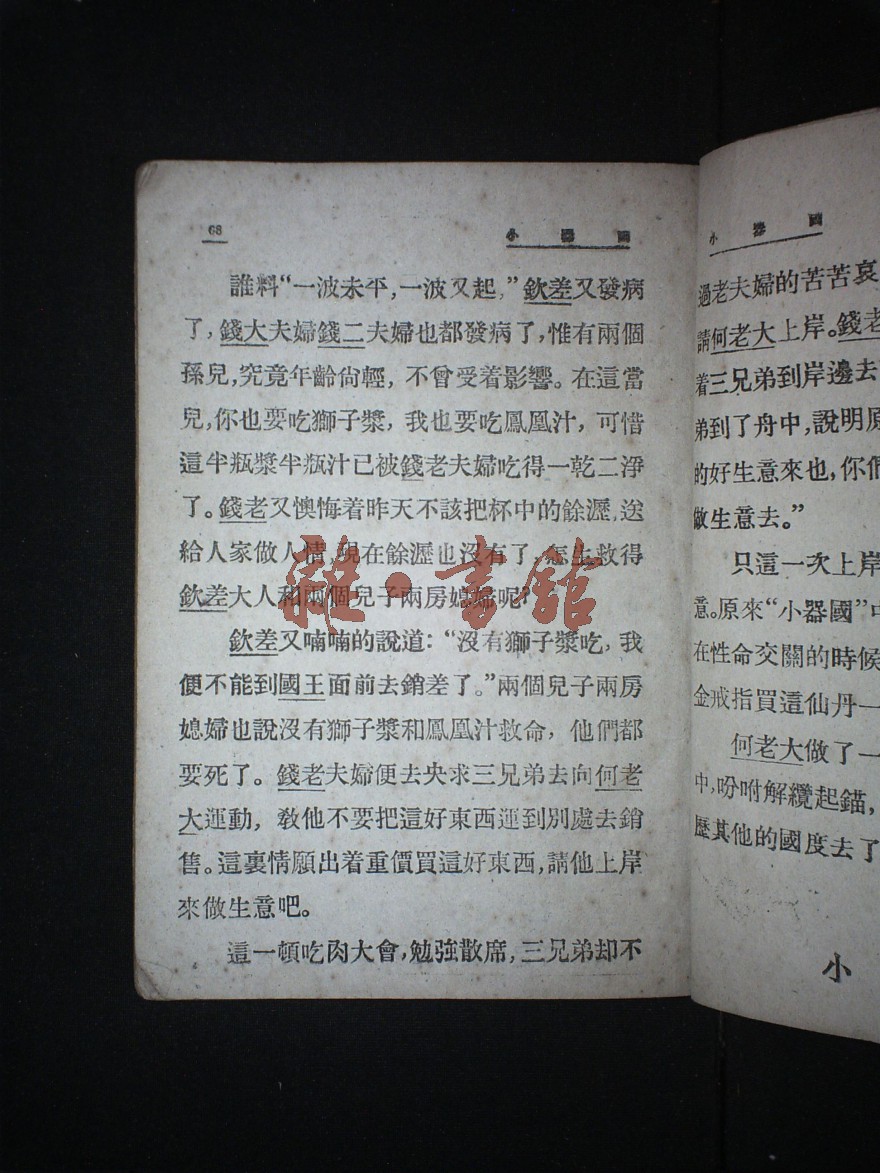 68
小器國
誰料“一波未平,一波又起,”欽差又發病
了,錢大夫婦錢二夫婦也都發病了,惟有兩個
孫兒,究竟年齡尙輕,不曾受着影響。在這當
兒,你也要吃獅子漿,我也要吃鳳凰汁,可惜
這半瓶漿半瓶汁已被錢老夫婦吃得一乾二淨
了。錢老又懊悔着昨天不該把杯中的餘瀝,送
給人家做人情,現在餘瀝也沒有了,怎生救得
欽差大人和兩個兒子兩房媳婦呢?
欽差又喃喃的說道:“沒有獅子漿吃,我
便不能到國王面前去銷差了。”兩個兒子兩房
媳婦也說沒有獅子漿和鳳凰汁救命,他們都
要死了。錢老夫婦便去央求三兄弟去向何老
大運動,敎他不要把這好東西運到別處去銷
售。這裏情願出着重價買這好東西,請他上岸
來做生意吧。
這一頓吃肉大會,勉強散席,三兄弟却不
雜·書館
小器國
過老夫婦的苦苦哀
請何老大上岸。錢老
着三兄弟到岸邊去
弟到了舟中,說明原
的好生意來也,你們
做生意去。”
只這一次上岸
意。原來“小器國”中
在性命交關的時候
金戒指買這仙丹一
何老大做了一
中,吩咐解纜起錨,
歷其他的國度去了
小